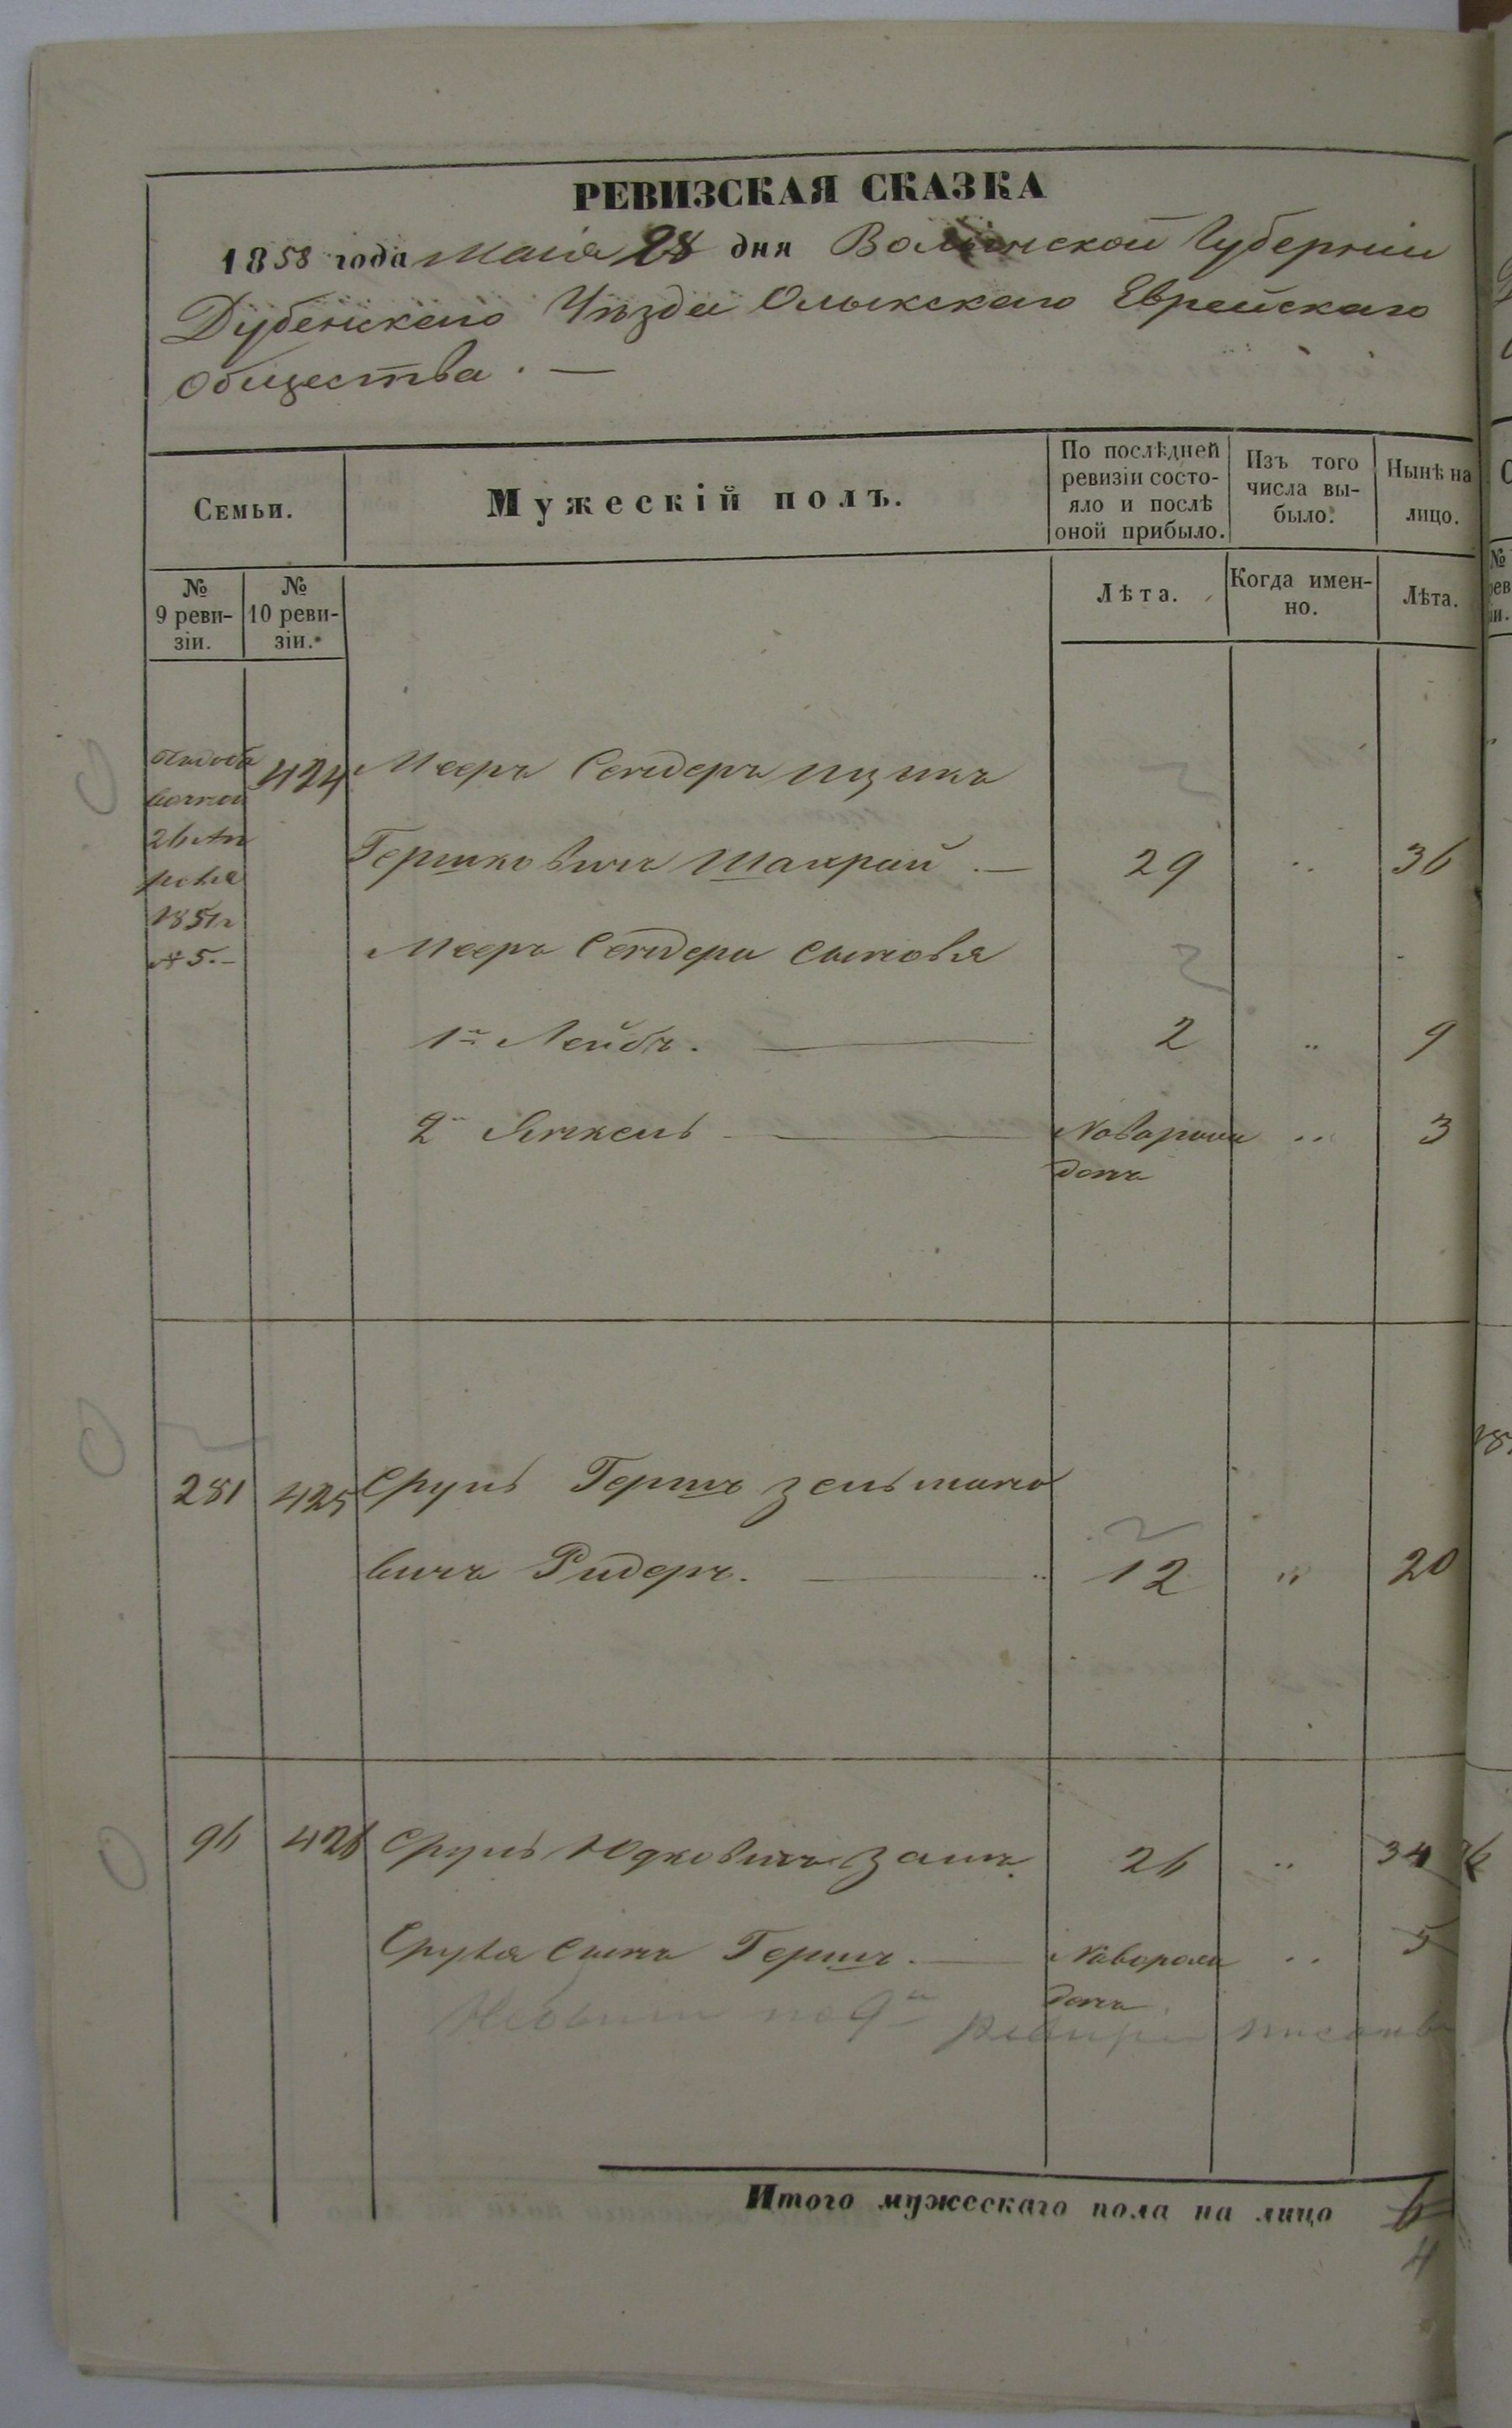 РЕВИЗСКАЯ СКАЗКА
1858 года Маія 28 дня Волынской Губерніи
Дубенскаго Уѣзда Олыкскаго Еврейскаго
Общества. —
Семьи.
Мужескій полъ.
По послѣдней ревизіи состо-
яло и послѣ
оной прибыло.
Изъ того
числа вы-
было.
Нынѣ на
лицо.
№
9 реви-
зіи.
№
10 реви-
зіи.
Лѣта.
Когда имен-
но.
Лѣта.
424 Мееръ Сендеръ Ицыкъ
1851г
№ 5.–
Гершковичъ Шахрай. — 29 „ 36
Меера Сендера сыновья
1й Лейбъ. — 2 „ 9
2й Янкель — Новорож
денъ „ 3
281 425 Сруль Гершъ Зельмано
вичъ Ридеръ. — 12 „ 20
96 426 Сруль Юдковичъ 26 „ 34
Сруля сынъ Гершъ. — Новорож
денъ „ 5
по 9й ревизіи
Итого мужескаго пола на лицо 6
4